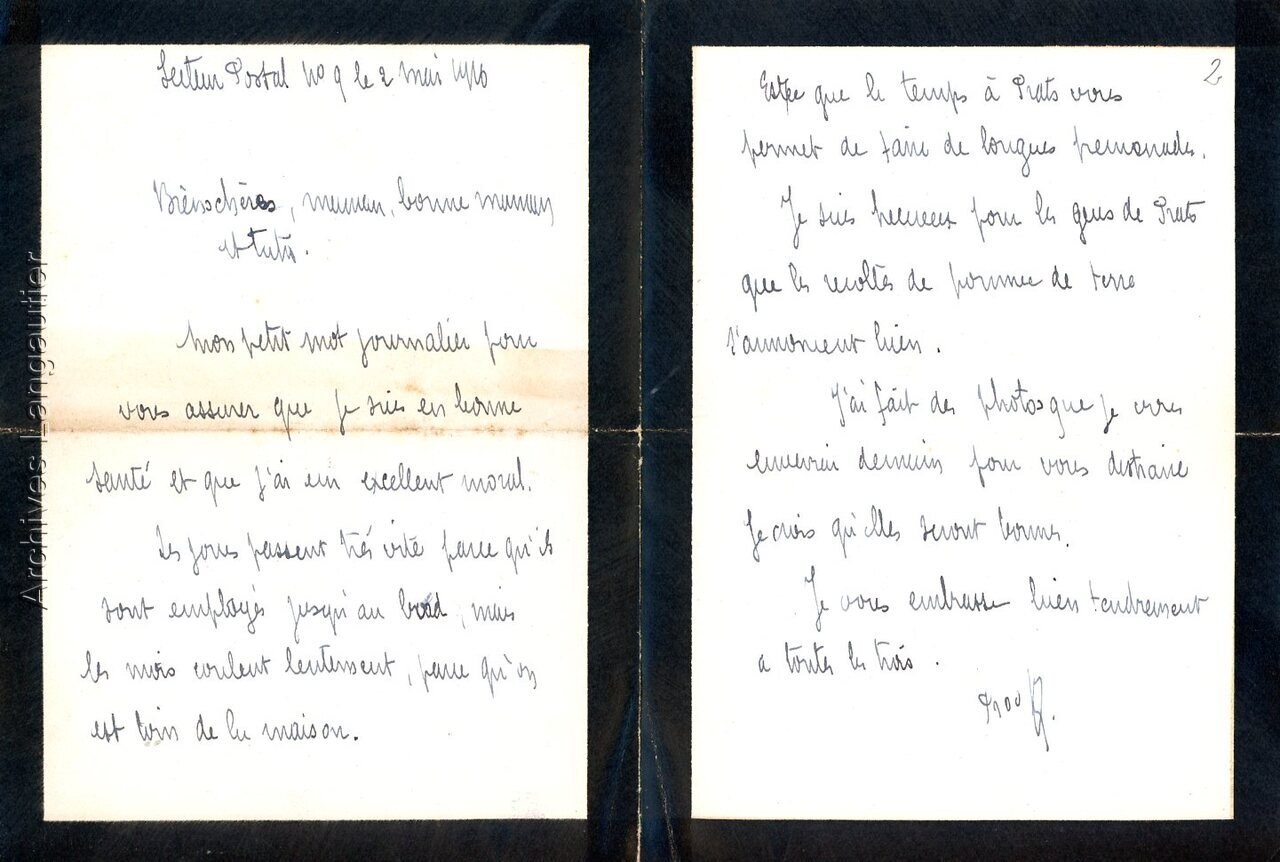 Secteur Postal No 9 le 2 mai 1916
Bien chères, maman, bonne maman
et tata.
Mon petit mot journalier pour
vous assurer que je suis en bonne
santé et que j'ai un excellent moral.
Les jours passent très vite parce qu'ils
sont employés jusqu'au bout, mais
les mois coulent lentement, parce qu'on
est loin de la maison.
2
Est ce que le temps à Prats vous
permet de faire de longues promenades.
Je suis heureux pour les gens de Prats
que les recoltes de pommes de terre
s'annoncent bien.
J'ai fait des photos que je vous
enverrai demain pour vous distraire
Je crois qu'elles seront bonnes.
Je vous embrasse bien tendrement
a toutes les trois.
Archives Langautier